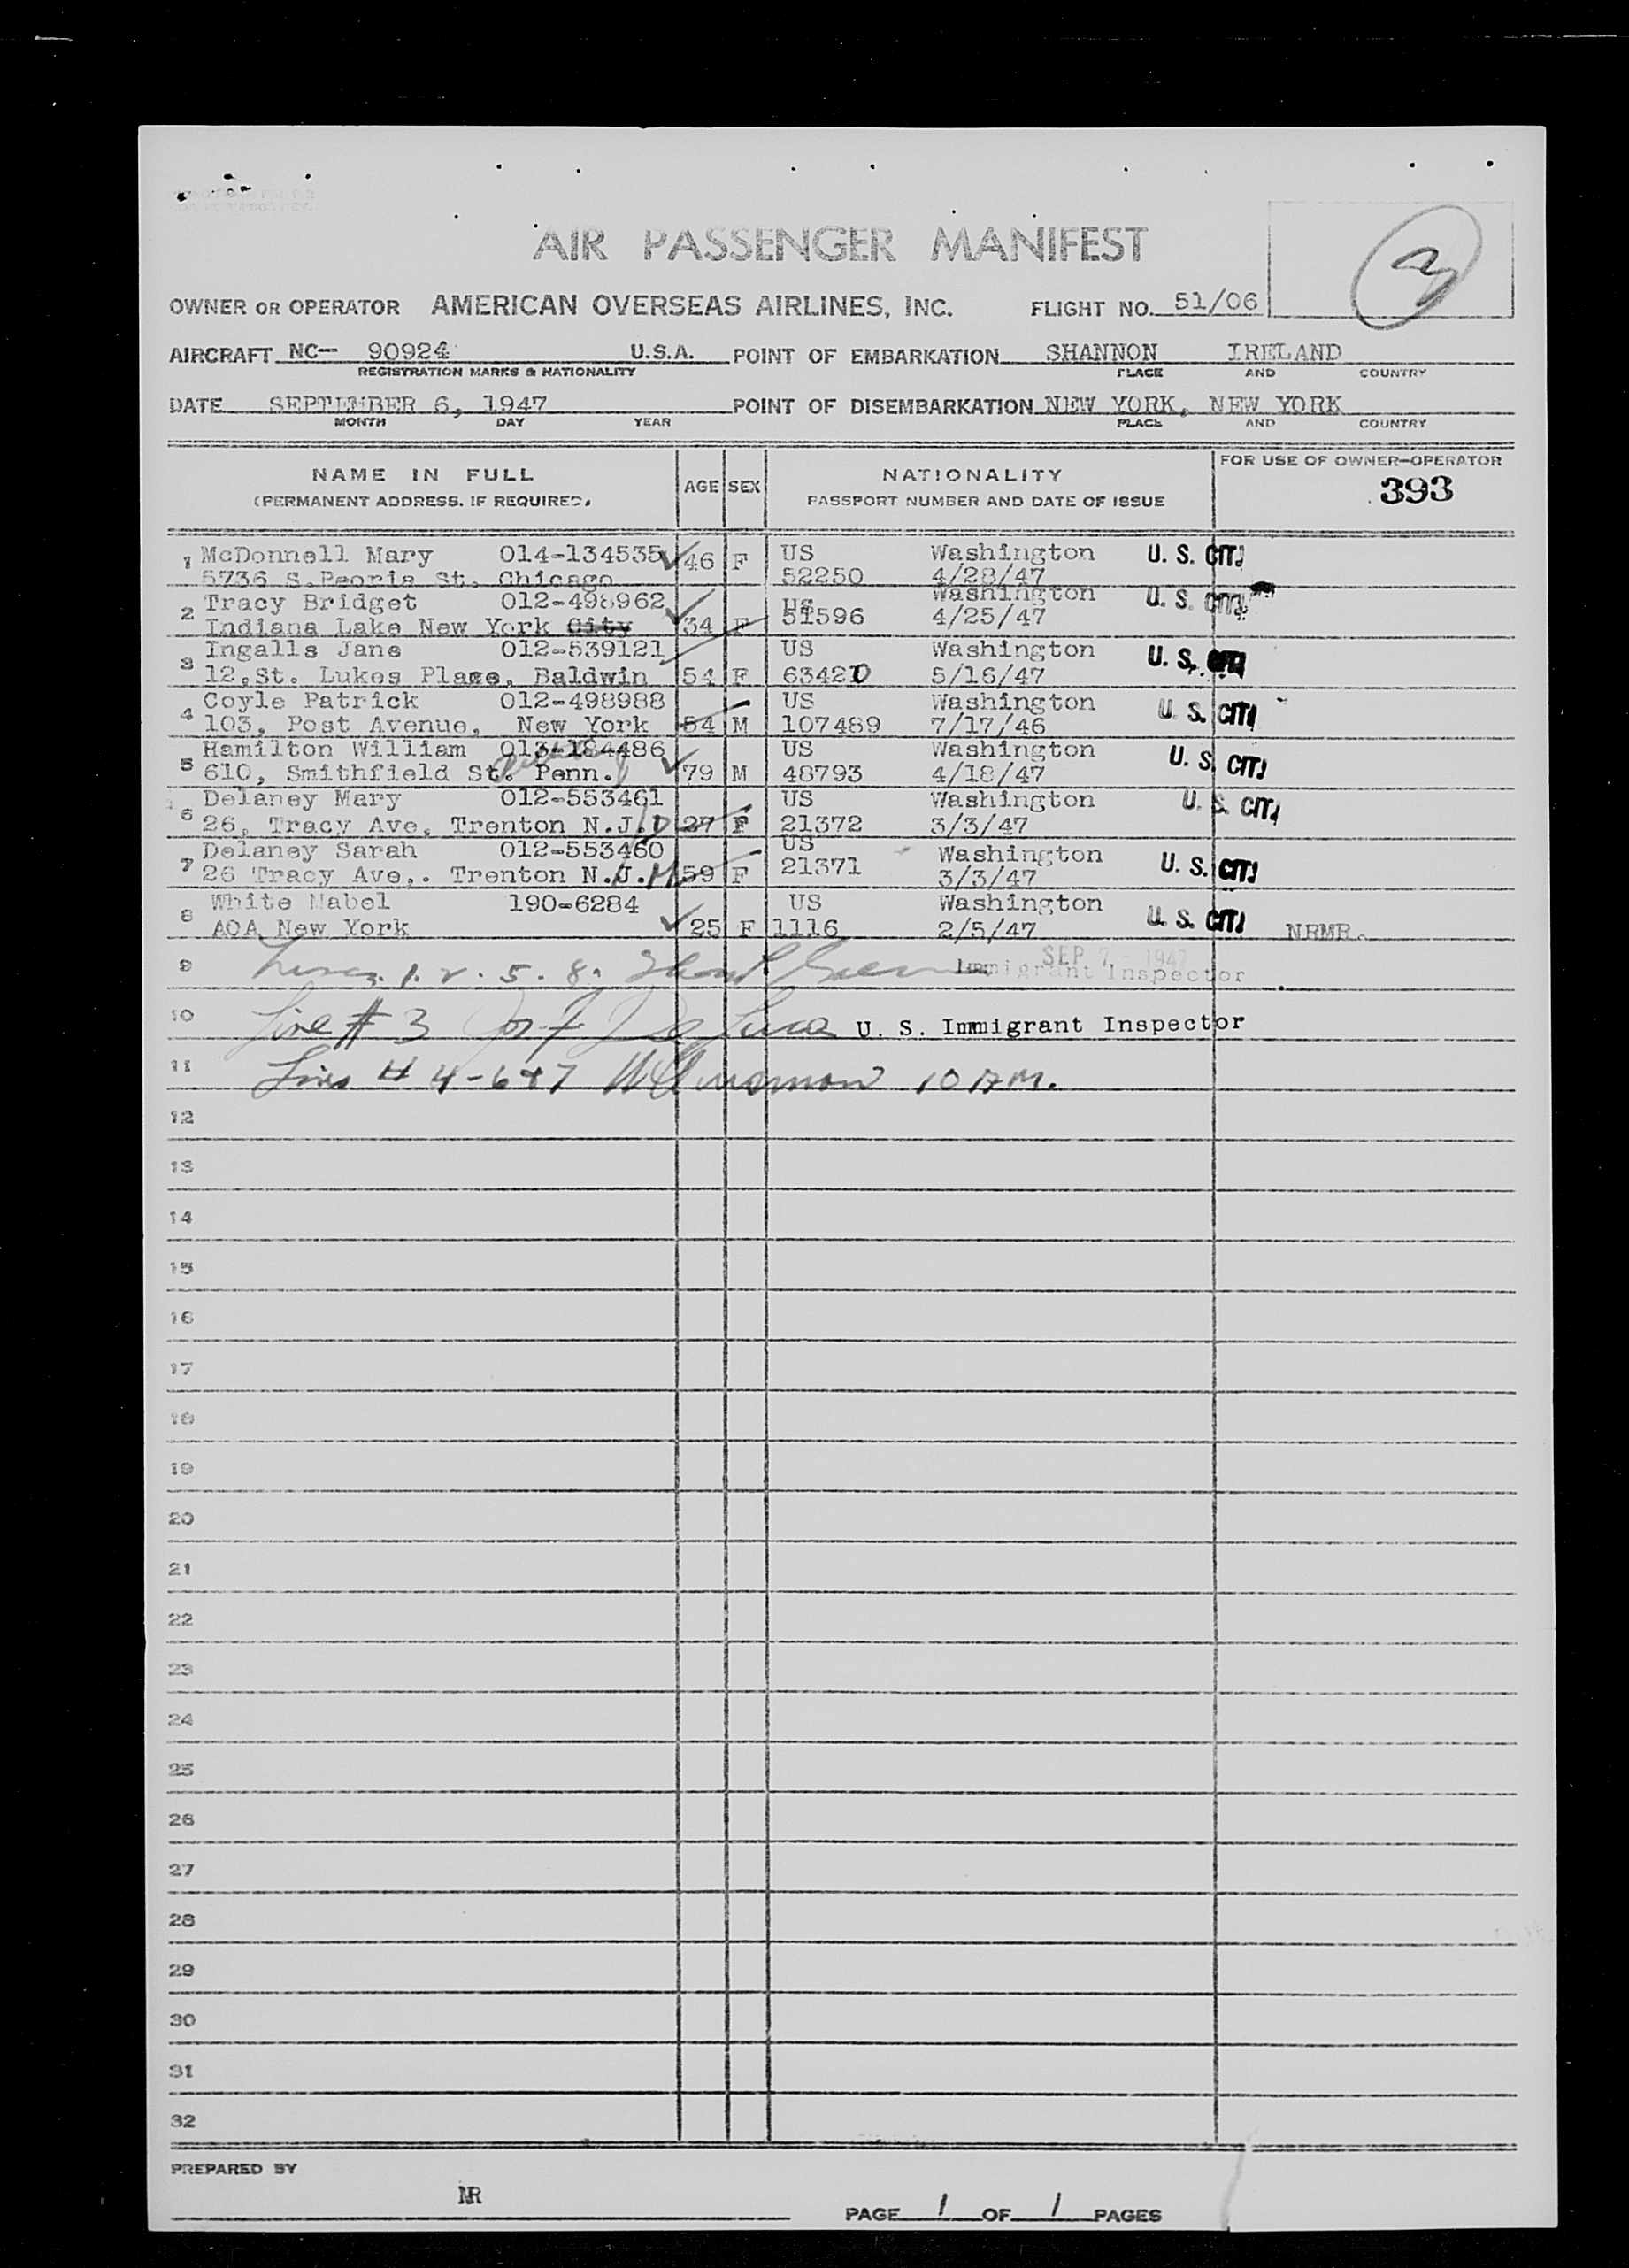 AIR PASSENGER MANIFEST
OWNER OR OPERATOR AMERICAN OVERSEAS AIRLINES, INC. FLIGHT NO. 51/06
AIRCRAFT NC- 90924 U.S.A. POINT OF EMBARKATION SHANNON IRELAND
REGISTRATION MARKS & NATIONALITY PLACE AND COUNTRY
DATE SEPTEMBER 6, 1947 POINT OF DISEMBARKATION NEW YORK, NEW YORK
MONTH DAY YEAR PLACE AND COUNTRY
NAME IN FULL AGE SEX NATIONALITY FOR USE OF OWNER-OPERATOR
(PERMANENT ADDRESS, IF REQUIRED) PASSPORT NUMBER AND DATE OF ISSUE 393
1 McDonnell Mary 014-134535 46 F US Washington U. S. CIT.
5736 S.Peoria St. Chicago 52250 4/28/47
2 Tracy Bridget 012-498962 34 F US Washington U. S. CIT.
Indiana Lake New York City 51596 4/25/47
3 Ingalls Jane 012-539121 US Washington U. S. CIT.
12,St. Lukes Place, Baldwin 54 F 63420 5/16/47
4 Coyle Patrick 012-498988 US Washington U. S. CIT.
103, Post Avenue, New York 54 M 107489 7/17/46
5 Hamilton William 013-184486 US Washington U. S. CIT.
610, Smithfield St. Penn. 79 M 48793 4/18/47
6 Delaney Mary 012-553461 US Washington U. S. CIT.
26, Tracy Ave, Trenton N.J. 27 F 21372 3/3/47
7 Delaney Sarah 012-553460 US Washington U. S. CIT.
26 Tracy Ave,. Trenton N.J. M 59 F 21371 3/3/47
8 White Mabel 190-6284 US Washington U. S. CIT.
AOA New York 25 F 1116 2/5/47 NRMR.
9 Lines 1. 2. 5. 8. SEP 7 1947 Immigrant Inspector
10 Line # 3 Jos. F. De Luca U. S. Immigrant Inspector
11 Lines # 4-6+7 10 AM.
12
13
14
15
16
17
18
19
20
21
22
23
24
25
26
27
28
29
30
31
32
PREPARED BY
NR
PAGE 1 OF 1 PAGES